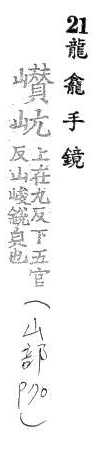 21龍龕手鏡
巑岏上在九反下五官
反山峻銳皃也
(山部 P70)